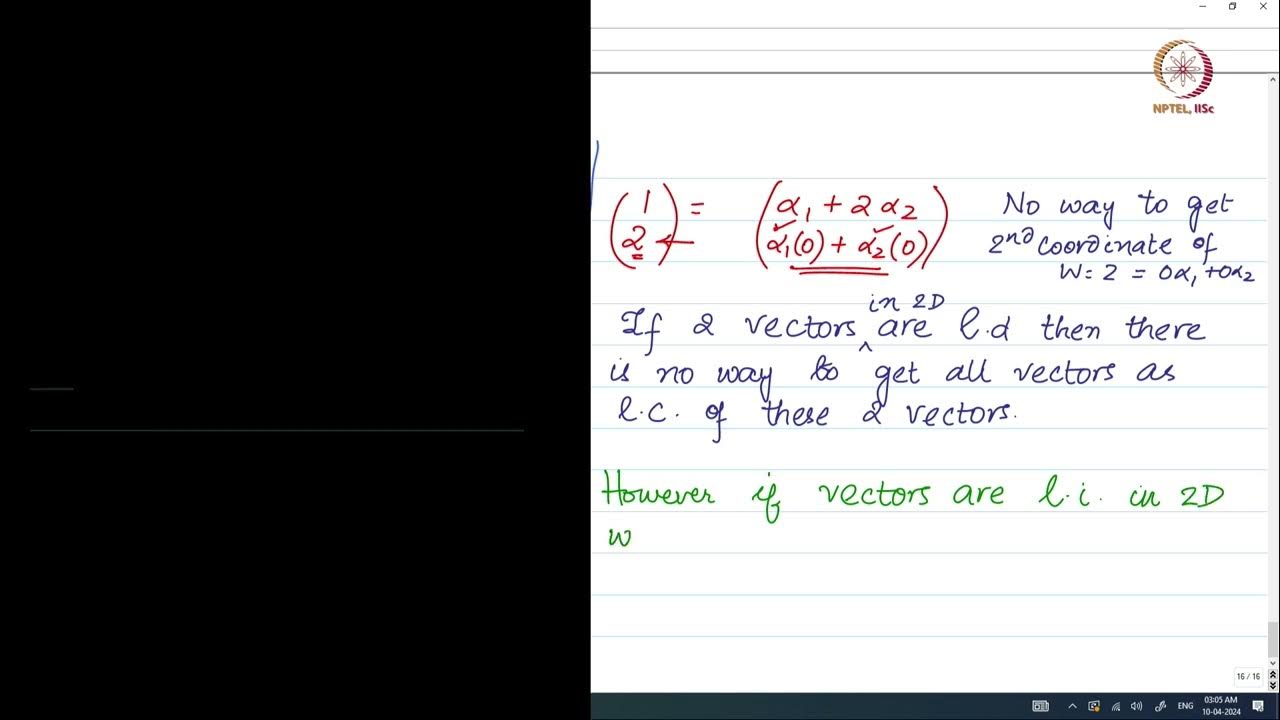 NPTEL, IISc
(1 2) = (α₁ + 2 α₂ α₁(0) + α₂(0))
No way to get
2nd coordinate of
W: 2 = 0α₁ + 0α₂
in 2D
If 2 vectors ^ are l.d then there
is no way to get all vectors as
l.c. of these 2 vectors.
However if vectors are l.i. in 2D
w
16 / 16
ENG
03:05 AM
10-04-2024